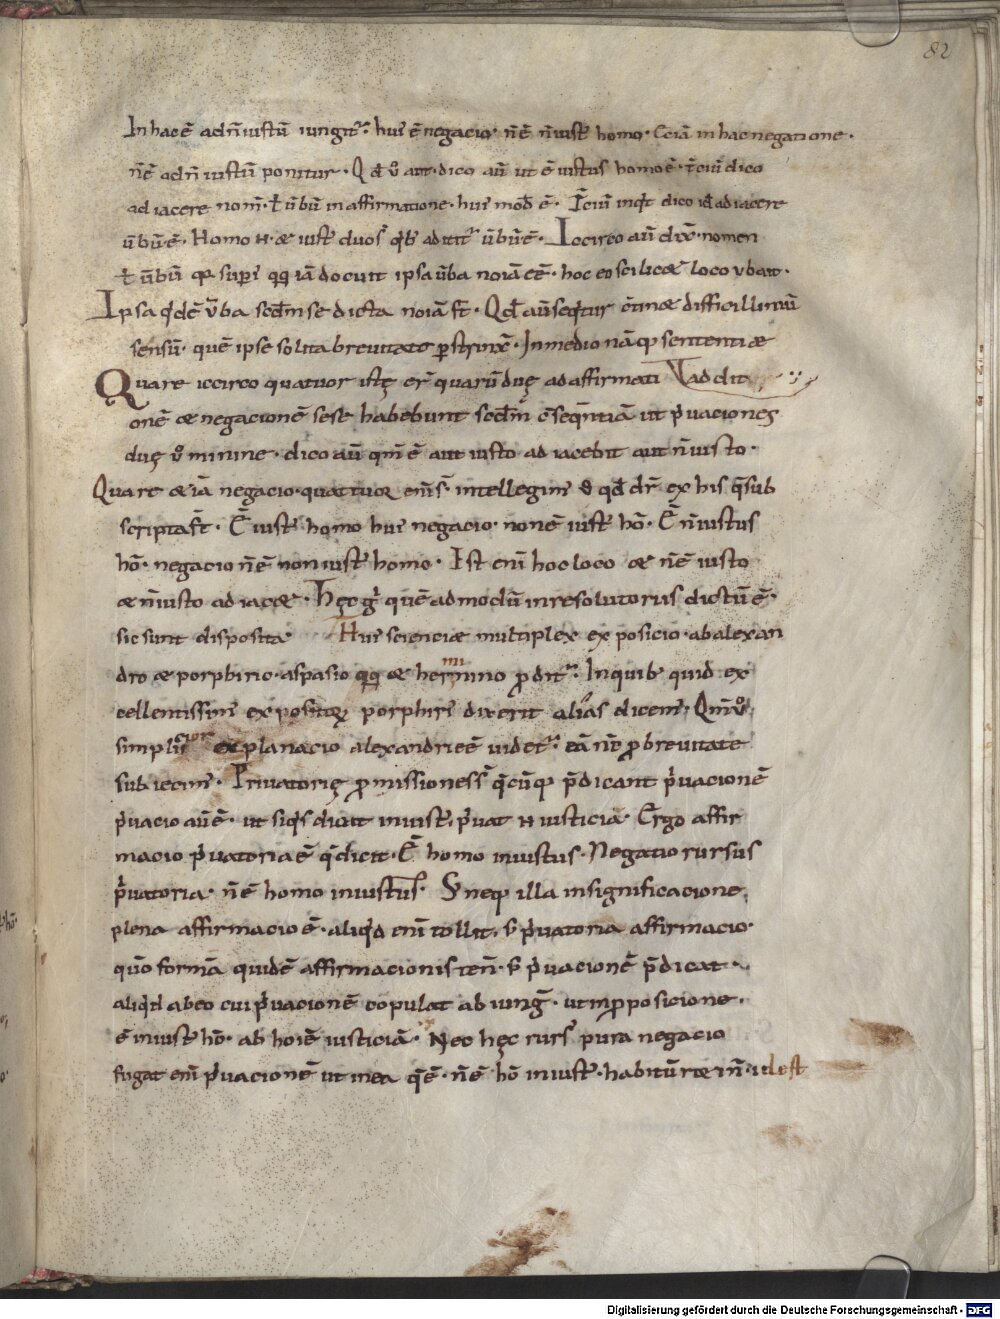 82
In hac ē ad n̄ iustū iungit᷒ · hui᷒ ē negacio · n̄ ē n̄ iust᷒ homo · & iā in hac negatione ·
n̄ ē ad n̄ iustū ponitur · Qd̄ v̊ aut · dico aū ut ē iustus homo ē · t̄ciū dico
adiacere nom̄ · ł ūbū in affirmatione · hui᷒ mod̄ ē · T̄ciū inqt dico id adiacere
ūbū ē · Homo n · & iust᷒ duos᷒ qb᷒ additᷓ ūbū ē · Iccirco aū dix̄ · nomen
ł ūbū qꝛ supi᷒ qq iā docuit ipsa ūba noīa eē · hoc eo scilicet loco ubait ·
Ipsa qdē v̄ba scdm se dicta noīa st̄ · Qd aū seqtur om̄a & difficillimū
sensū · quē ipse solita brevitate pstrinx̄ · In medio nāq sententiæ
Quare iccirco quatuor istę er̄ quarū duę ad affirmati addit
onē & negacionē sese habebunt scdm̄ c̄seqntiā ut pvaciones
duę v̊ minime · dico aū qm̄ ē aut iusto adiacebit aut n̄ iusto ·
Quare & iā negacio · quattuor em̄s᷒ · intellegim᷒ v̊ qd dr̄ ex his q̄ sub
scripta st̄ · Ē iust᷒ homo hui᷒ negacio · non ē iust᷒ hō · Ē n̄ iustus
hō · negacio n̄ ē non iust᷒ homo · Ist em̄ hoc loco & n̄ ē iusto
& n̄ iusto adiacet · Hęc gͥ quēadmodū in resolutoriis dictū ē ·
sic sunt disposita Hui᷒ scienciæ multiplex exposicio · ab alexan
dro & porphirio · aspasio qq & hermino pditᷓ · In quib᷒ quid ex
cellentissim᷒ expositoꝝ porphiri᷒ dixerit alias dicem᷒ · Qm̄ v̊
simplicior explanacio alexandri eē uidet᷒ · eā n̄c p brevitate
subiecim᷒ · Privatorię pmissiones s᷒ q̄cūq pdicant pvacionē
pvacio aū ē · ut siqs dicit iniust᷒ pvat n iusticiā · Ergo affir
macio pvatoria ē q̄ dicit · Ē homo iniustus · Negatio rursus
pvatoria · n̄ ē homo iniustus᷒ · S᷒ neq illa in significacione
plena affirmacio ē · aliqd em̄ tollit · s᷒ pvatoria affirmacio ·
quo formā quidē affirmacionis ten̄ · s᷒ pvacionē pdicat ·
aliqd ab eo cui pvacionē copulat abiung᷒ · ut in pposicione ·
ē iniust᷒ hō · ab hoīe iusticiā · Nec hęc rurs᷒ pura negacio
fugat em̄ pvacionē ut in ea q̄ ē · n̄ ē hō iniust᷒ · habitū idest
Digitalisierung gefördert durch die Deutsche Forschungsgemeinschaft · DFG